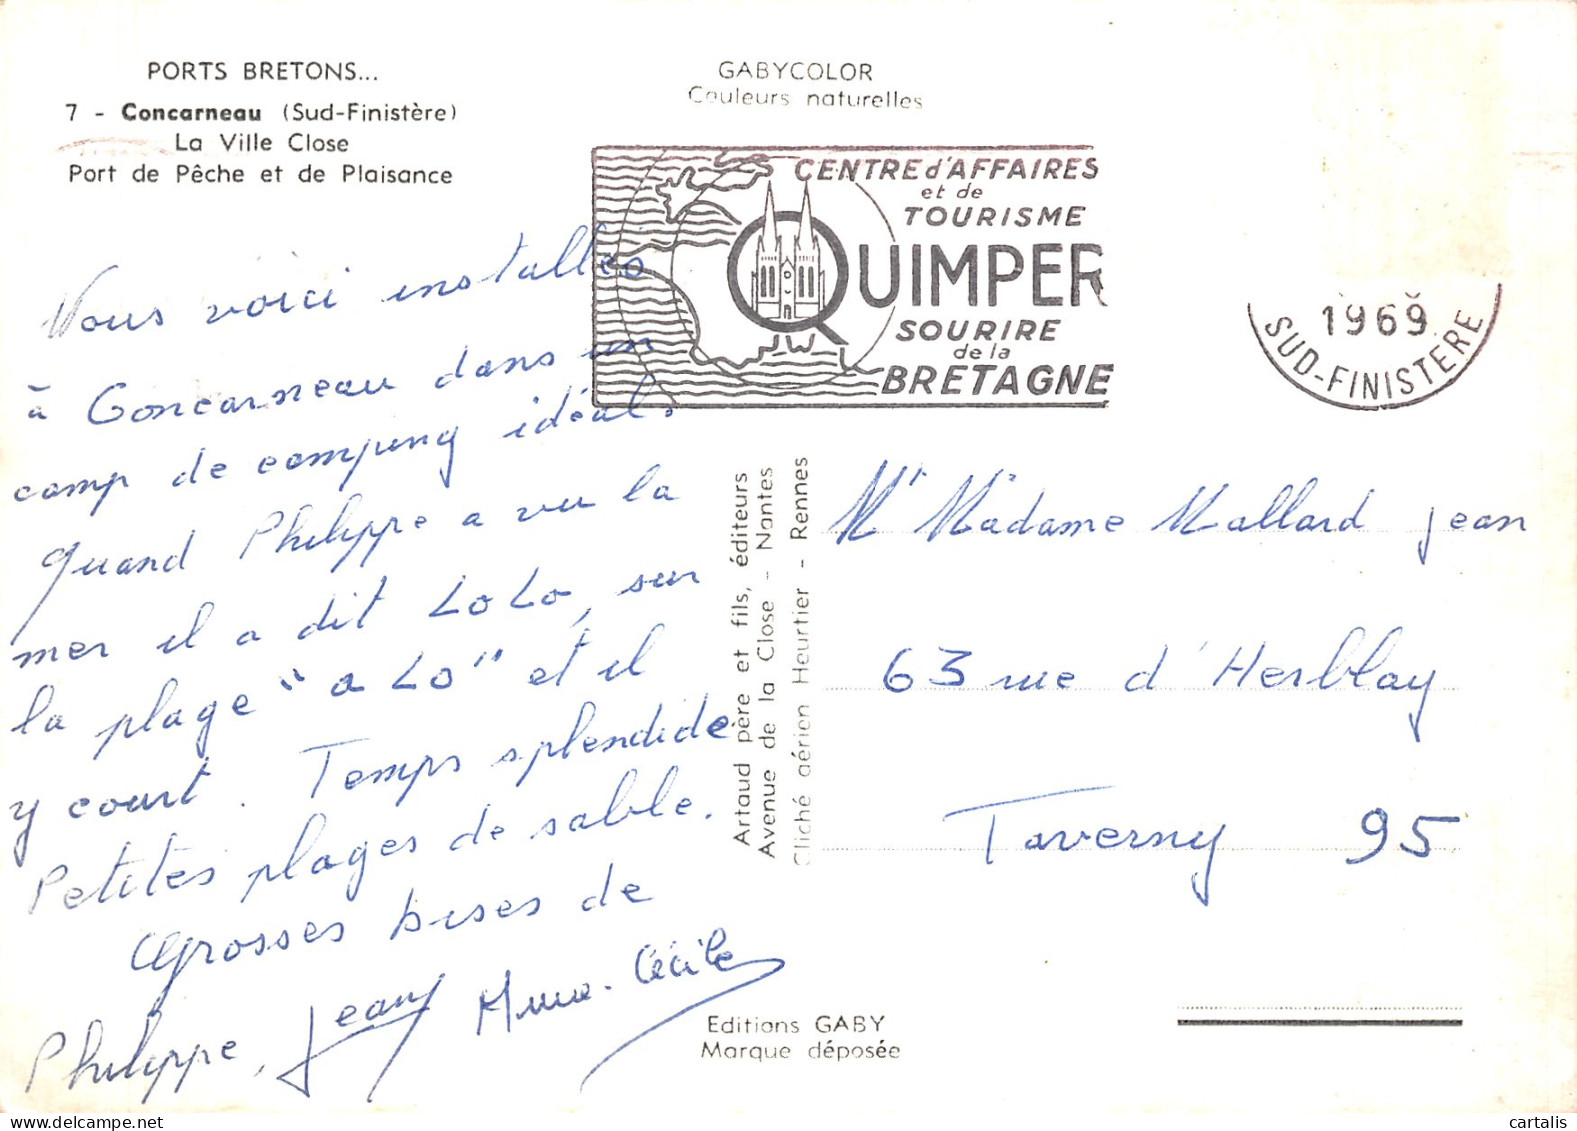 PORTS BRETONS...
7 - Concarneau (Sud-Finistère)
La Ville Close
Port de Pêche et de Plaisance
GABYCOLOR
Couleurs naturelles
CENTRE d'AFFAIRES
et de
TOURISME
QUIMPER
SOURIRE
de la
BRETAGNE
1969
SUD-FINISTERE
Nous voici installés
à Concarneau dans un
camp de camping idéal.
Quand Philippe a vu la
mer il a dit LoLo, sur
la plage "a Lo" et il
y court. Temps splendide
Petites plages de sable.
Grosses bises de
Philippe, Jean Anne-Cécile
Artaud père et fils, éditeurs
Avenue de la Close - Nantes
Cliché aérien Heurtier - Rennes
Mr Madame Mallard Jean
63 rue d'Herblay
Taverny 95
Editions GABY
Marque déposée
cartalis
www.delcampe.net